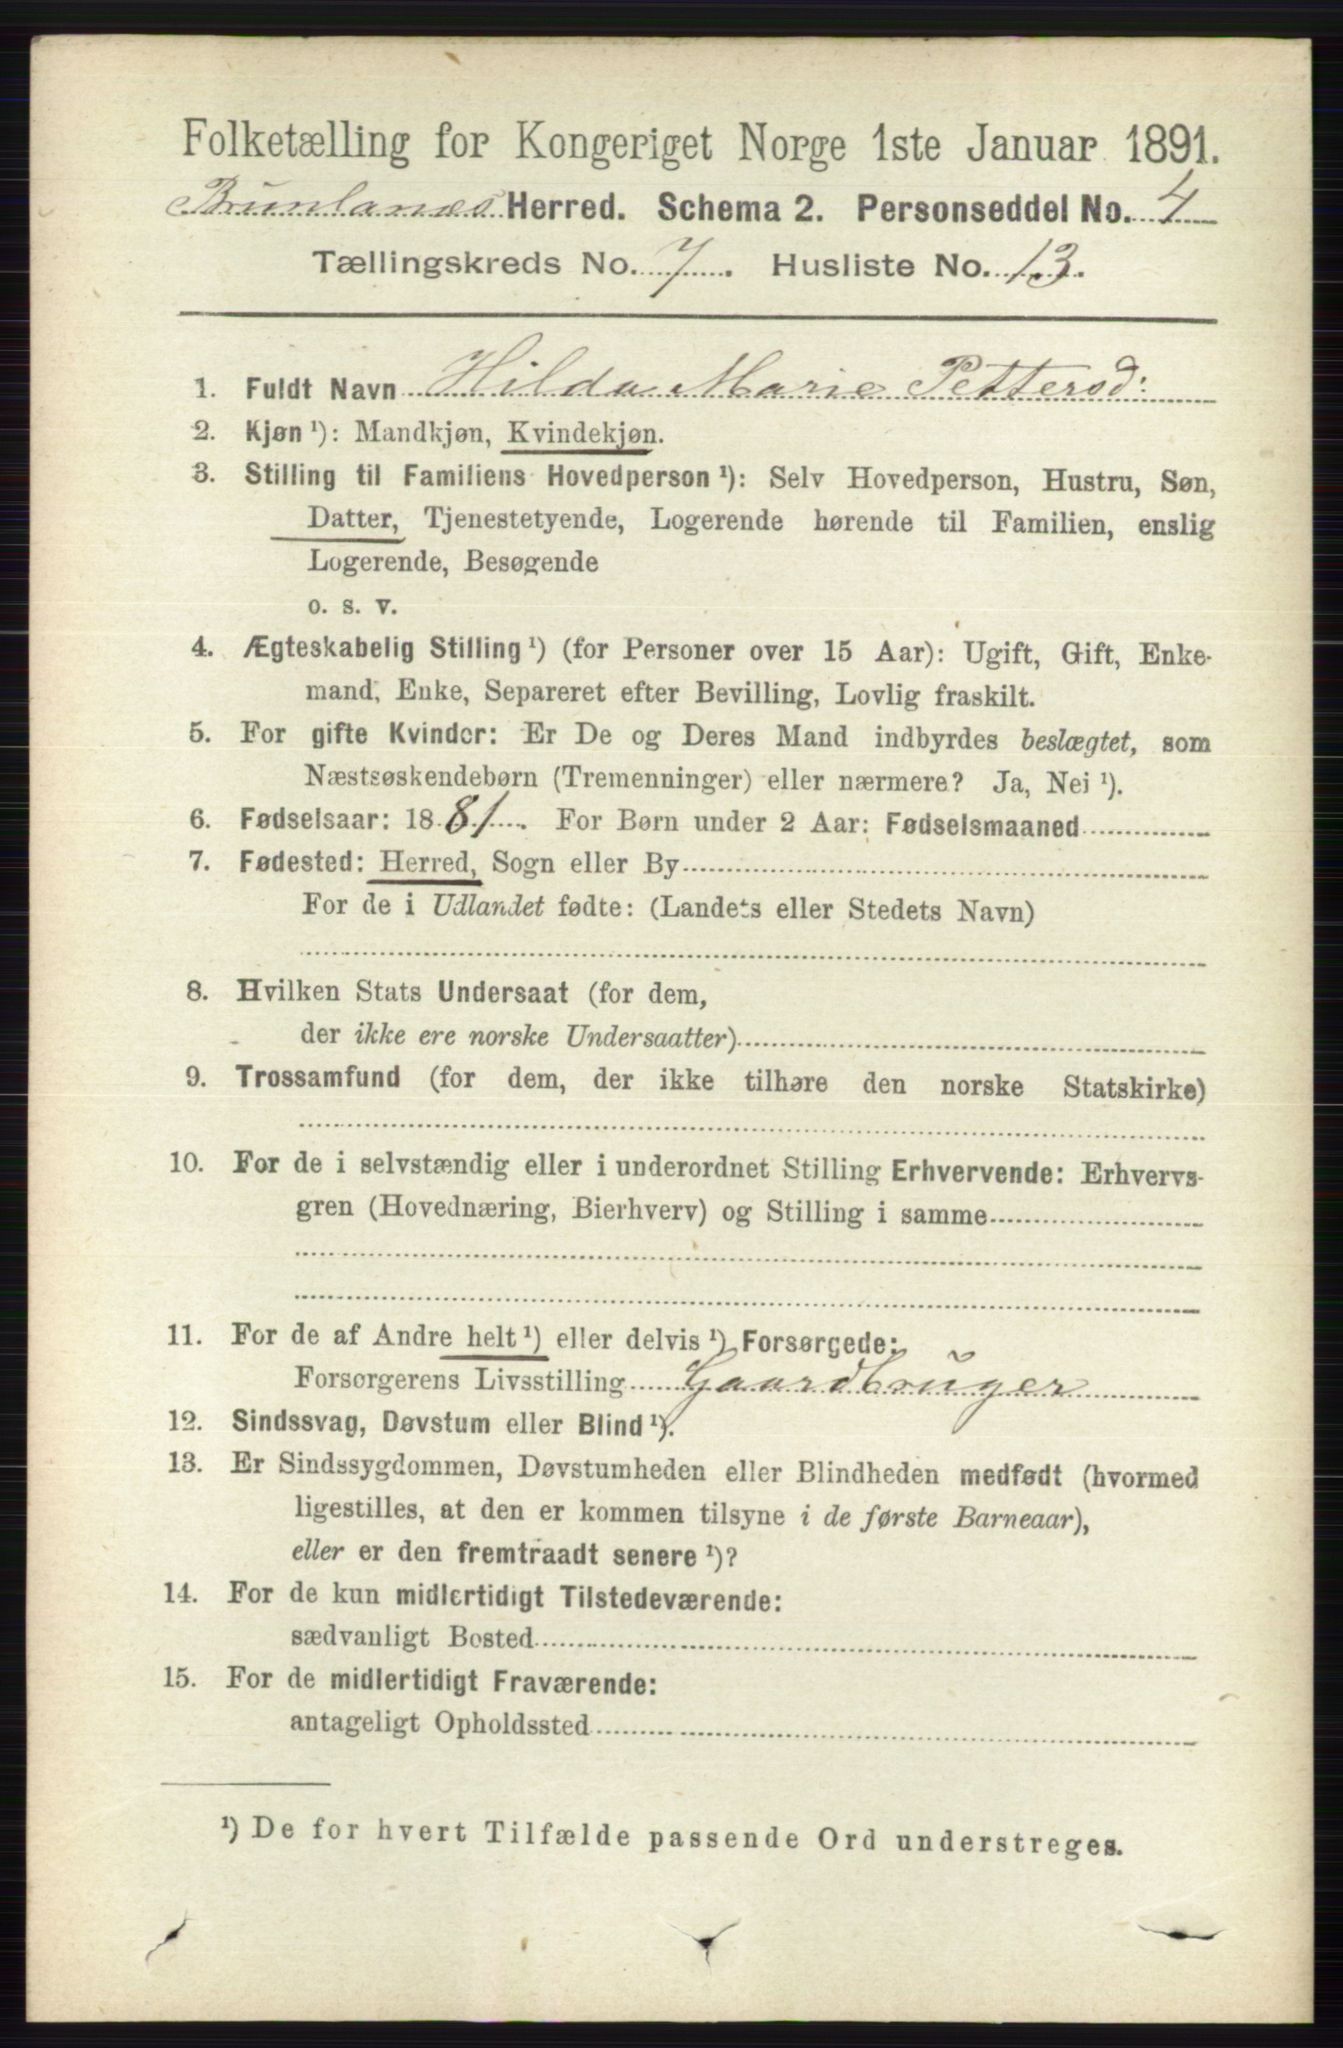 Folketælling for Kongeriget Norge 1ste Januar 1891.
Brunlanæs Herred. Schema 2. Personseddel No. 4
Tællingskreds No. 7. Husliste No. 13.
1. Fuldt Navn Hilda Marie Pettersd:
2. Kjøn ¹): Mandkjøn, Kvindekjøn.
3. Stilling til Familiens Hovedperson ¹): Selv Hovedperson, Hustru, Søn,
Datter, Tjenestetyende, Logerende hørende til Familien, enslig
Logerende, Besøgende
o. s. v.
4. Ægteskabelig Stilling ¹) (for Personer over 15 Aar): Ugift, Gift, Enke-
mand, Enke, Separeret efter Bevilling, Lovlig fraskilt.
5. For gifte Kvinder: Er De og Deres Mand indbyrdes beslægtet, som
Næstsøskendebørn (Tremenninger) eller nærmere? Ja, Nei ¹).
6. Fødselsaar: 1881. For Børn under 2 Aar: Fødselsmaaned
7. Fødested: Herred, Sogn eller By
For de i Udlandet fødte: (Landets eller Stedets Navn)
8. Hvilken Stats Undersaat (for dem,
der ikke ere norske Undersaatter)
9. Trossamfund (for dem, der ikke tilhøre den norske Statskirke)
10. For de i selvstændig eller i underordnet Stilling Erhvervende: Erhvervs-
gren (Hovednæring, Bierhverv) og Stilling i samme
11. For de af Andre helt ¹) eller delvis ¹) Forsørgede:
Forsørgerens Livsstilling Gaardbrüger
12. Sindssvag, Døvstum eller Blind ¹).
13. Er Sindssygdommen, Døvstumheden eller Blindheden medfødt (hvormed
ligestilles, at den er kommen tilsyne i de første Barneaar),
eller er den fremtraadt senere ¹)?
14. For de kun midlertidigt Tilstedeværende:
sædvanligt Bosted
15. For de midlertidigt Fraværende:
antageligt Opholdssted
¹) De for hvert Tilfælde passende Ord understreges.